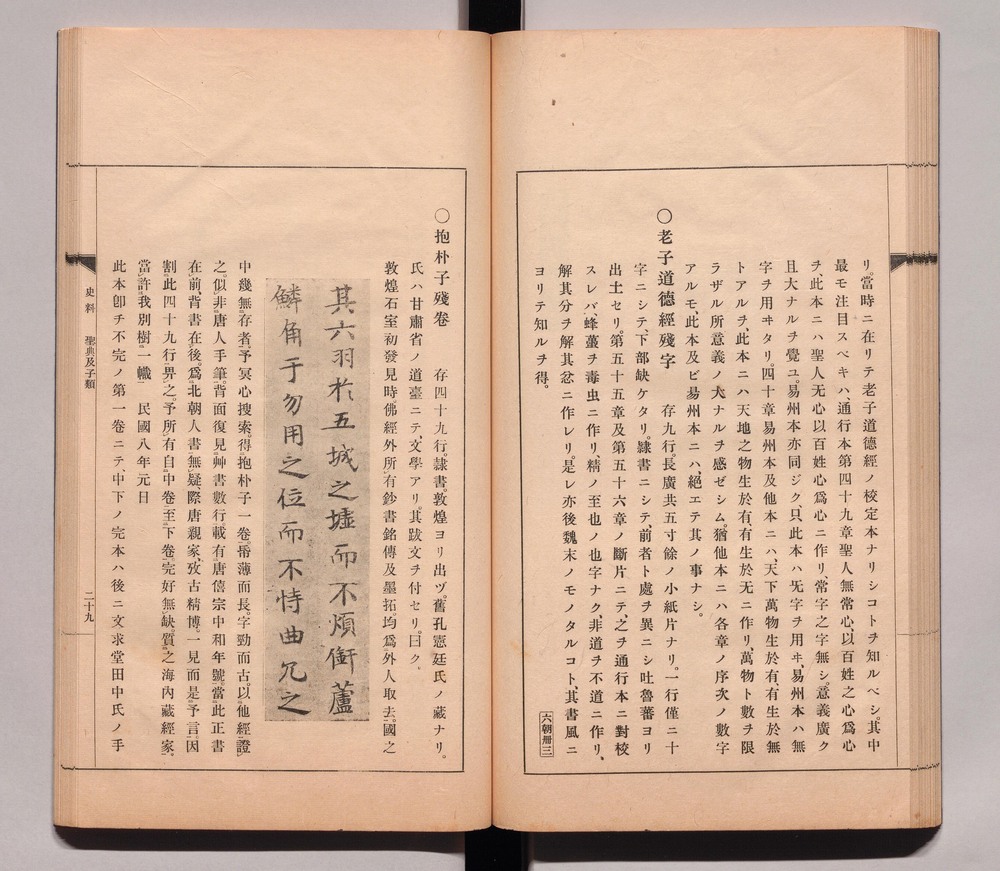 リ。當時ニ在リテ老子道德經ノ校定本ナリシコトヲ知ルベシ。其中
最モ注目スベキハ、通行本第四十九章聖人無常心、以百姓之心爲心
ヲ、此本ニハ聖人无心以百姓心爲心ニ作リ、常字之字無シ。意義廣ク
且大ナルヲ覺ユ。易州本亦同ジク、只此本ハ旡字ヲ用ヰ、易州本ハ無
字ヲ用ヰタリ。四十章易州本及他本ニハ、天下萬物生於有、有生於無
トアルヲ、此本ニハ天地之物生於有、有生於无ニ作リ、萬物ト數ヲ限
ラザル所意義ノ大ナルヲ感ゼシム。猶他本ニハ各章ノ序次ノ數字
アルモ、此本及ビ易州本ニハ、絕エテ其ノ事ナシ。
〇老子道德經殘字 存九行。長廣共五寸餘ノ小紙片ナリ。一行僅ニ十
字ニシテ、下部缺ケタリ。隸書ニシテ、前者ト處ヲ異ニシ吐魯蕃ヨリ
出土セリ。第五十五章及第五十六章ノ斷片ニテ、之ヲ通行本ニ對校
スレバ、蜂蠆ヲ毒虫ニ作リ、精ノ至也ノ也字ナク、非道ヲ不道ニ作リ、
解其分ヲ解其忿ニ作レリ。是レ亦後魏末ノモノタルコト、其書風ニ
ヨリテ知ルヲ得。
六朝冊三
〇抱朴子殘卷 存四十九行。隸書。敦煌ヨリ出ヅ。舊孔憲廷氏ノ藏ナリ。
氏ハ甘肅省ノ道臺ニテ、文學アリ。其跋文ヲ付セリ。曰ク。
敦煌石室初發見時。佛經外所有鈔書銘傳及墨拓。均爲外人取去。國之
其六羽於五城之墟而不煩銜蘆
鱗角于勿用之位而不恃曲冗之
中幾無存者。予冥心搜索。得抱朴子一卷。帋薄而長。字勁而古。以他經證
之。似非唐人手筆。背面復見艸書數行載有唐僖宗中和年號。當此正書
在前、背書在後。爲北朝人書無疑、際唐親家、攷古精博。一見而是予言。因
割此四十九行畀之。予所有自中卷至下卷。完好無缺。質之海內藏經家。
當許我別樹一幟 民國八年元日
此本卽チ不完ノ第一卷ニテ、中下ノ完本ハ後ニ文求堂田中氏ノ手
史料 聖典及子類
二十九